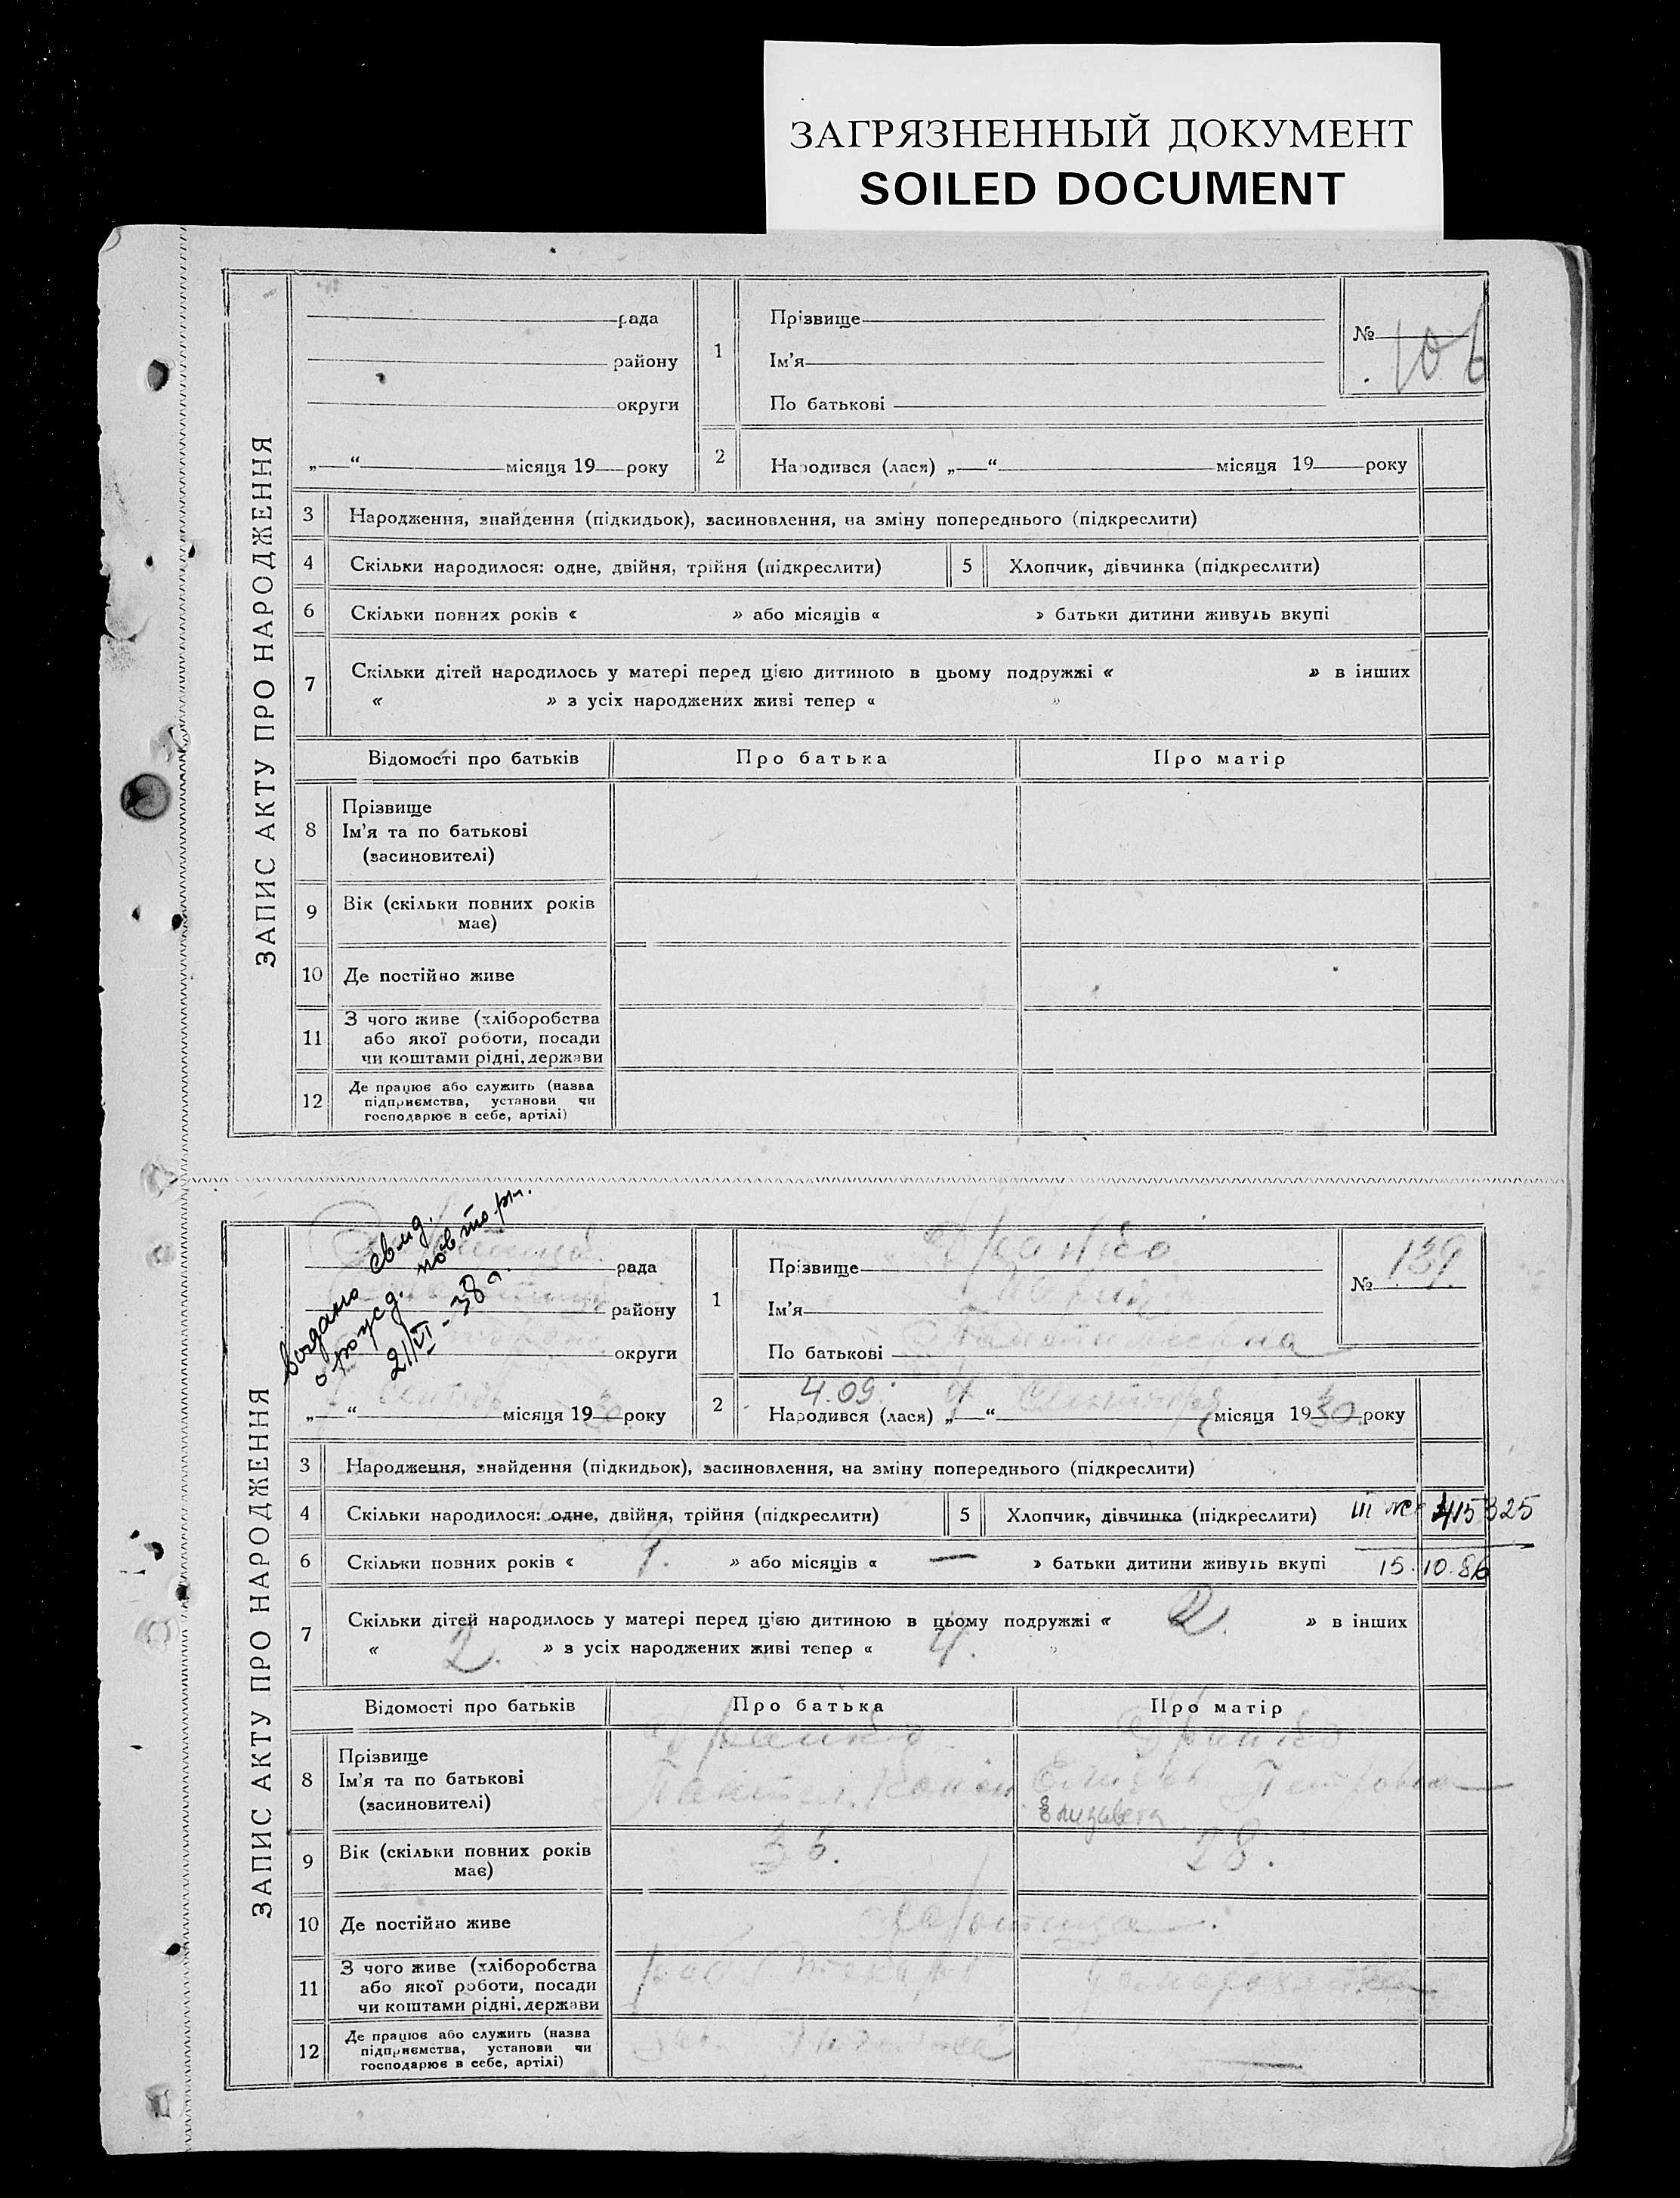 ЗАГРЯЗНЕННЫЙ ДОКУМЕНТ
SOILED DOCUMENT
ЗАПИС АКТУ ПРО НАРОДЖЕННЯ
рада
району
округи
„ “ місяця 19 року
1
Прізвище
Ім'я
По батькові
№ 106
2
Народився (лася) „ “ місяця 19 року
3 Народження, знайдення (підкидьок), засиновлення, на зміну попереднього (підкреслити)
4 Скільки народилося: одне, двійня, трійня (підкреслити) 5 Хлопчик, дівчинка (підкреслити)
6 Скільки повних років « » або місяців « » батьки дитини живуть вкупі
7 Скільки дітей народилось у матері перед цією дитиною в цьому подружжі « » в інших
« » з усіх народжених живі тепер « »
Відомості про батьків Про батька Про матір
8 Прізвище
Ім'я та по батькові
(засиновителі)
9 Вік (скільки повних років
має)
10 Де постійно живе
11 З чого живе (хліборобства
або якої роботи, посади
чи коштами рідні, держави
12 Де працює або служить (назва
підприємства, установи чи
господарює в себе, артілі)
ЗАПИС АКТУ ПРО НАРОДЖЕННЯ
видано свид.
о рожд. повторн.
21/VI-38 г.
рада
району
округи
„ “ місяця 1930 року
1
Прізвище
Ім'я
По батькові
№ 139
2
4.09.
Народився (лася) „4“ Сентября місяця 1930 року
3 Народження, знайдення (підкидьок), засиновлення, на зміну попереднього (підкреслити)
4 Скільки народилося: одне, двійня, трійня (підкреслити) 5 Хлопчик, дівчинка (підкреслити) III 415325
6 Скільки повних років « 9. » або місяців « — » батьки дитини живуть вкупі 15.10.86
7 Скільки дітей народилось у матері перед цією дитиною в цьому подружжі « 2. » в інших
« 2. » з усіх народжених живі тепер « 4. »
Відомості про батьків Про батька Про матір
8 Прізвище
Ім'я та по батькові
(засиновителі)
Петровна
Елизавета
9 Вік (скільки повних років
має) 36. 28.
10 Де постійно живе
11 З чого живе (хліборобства
або якої роботи, посади
чи коштами рідні, держави
12 Де працює або служить (назва
підприємства, установи чи
господарює в себе, артілі) —